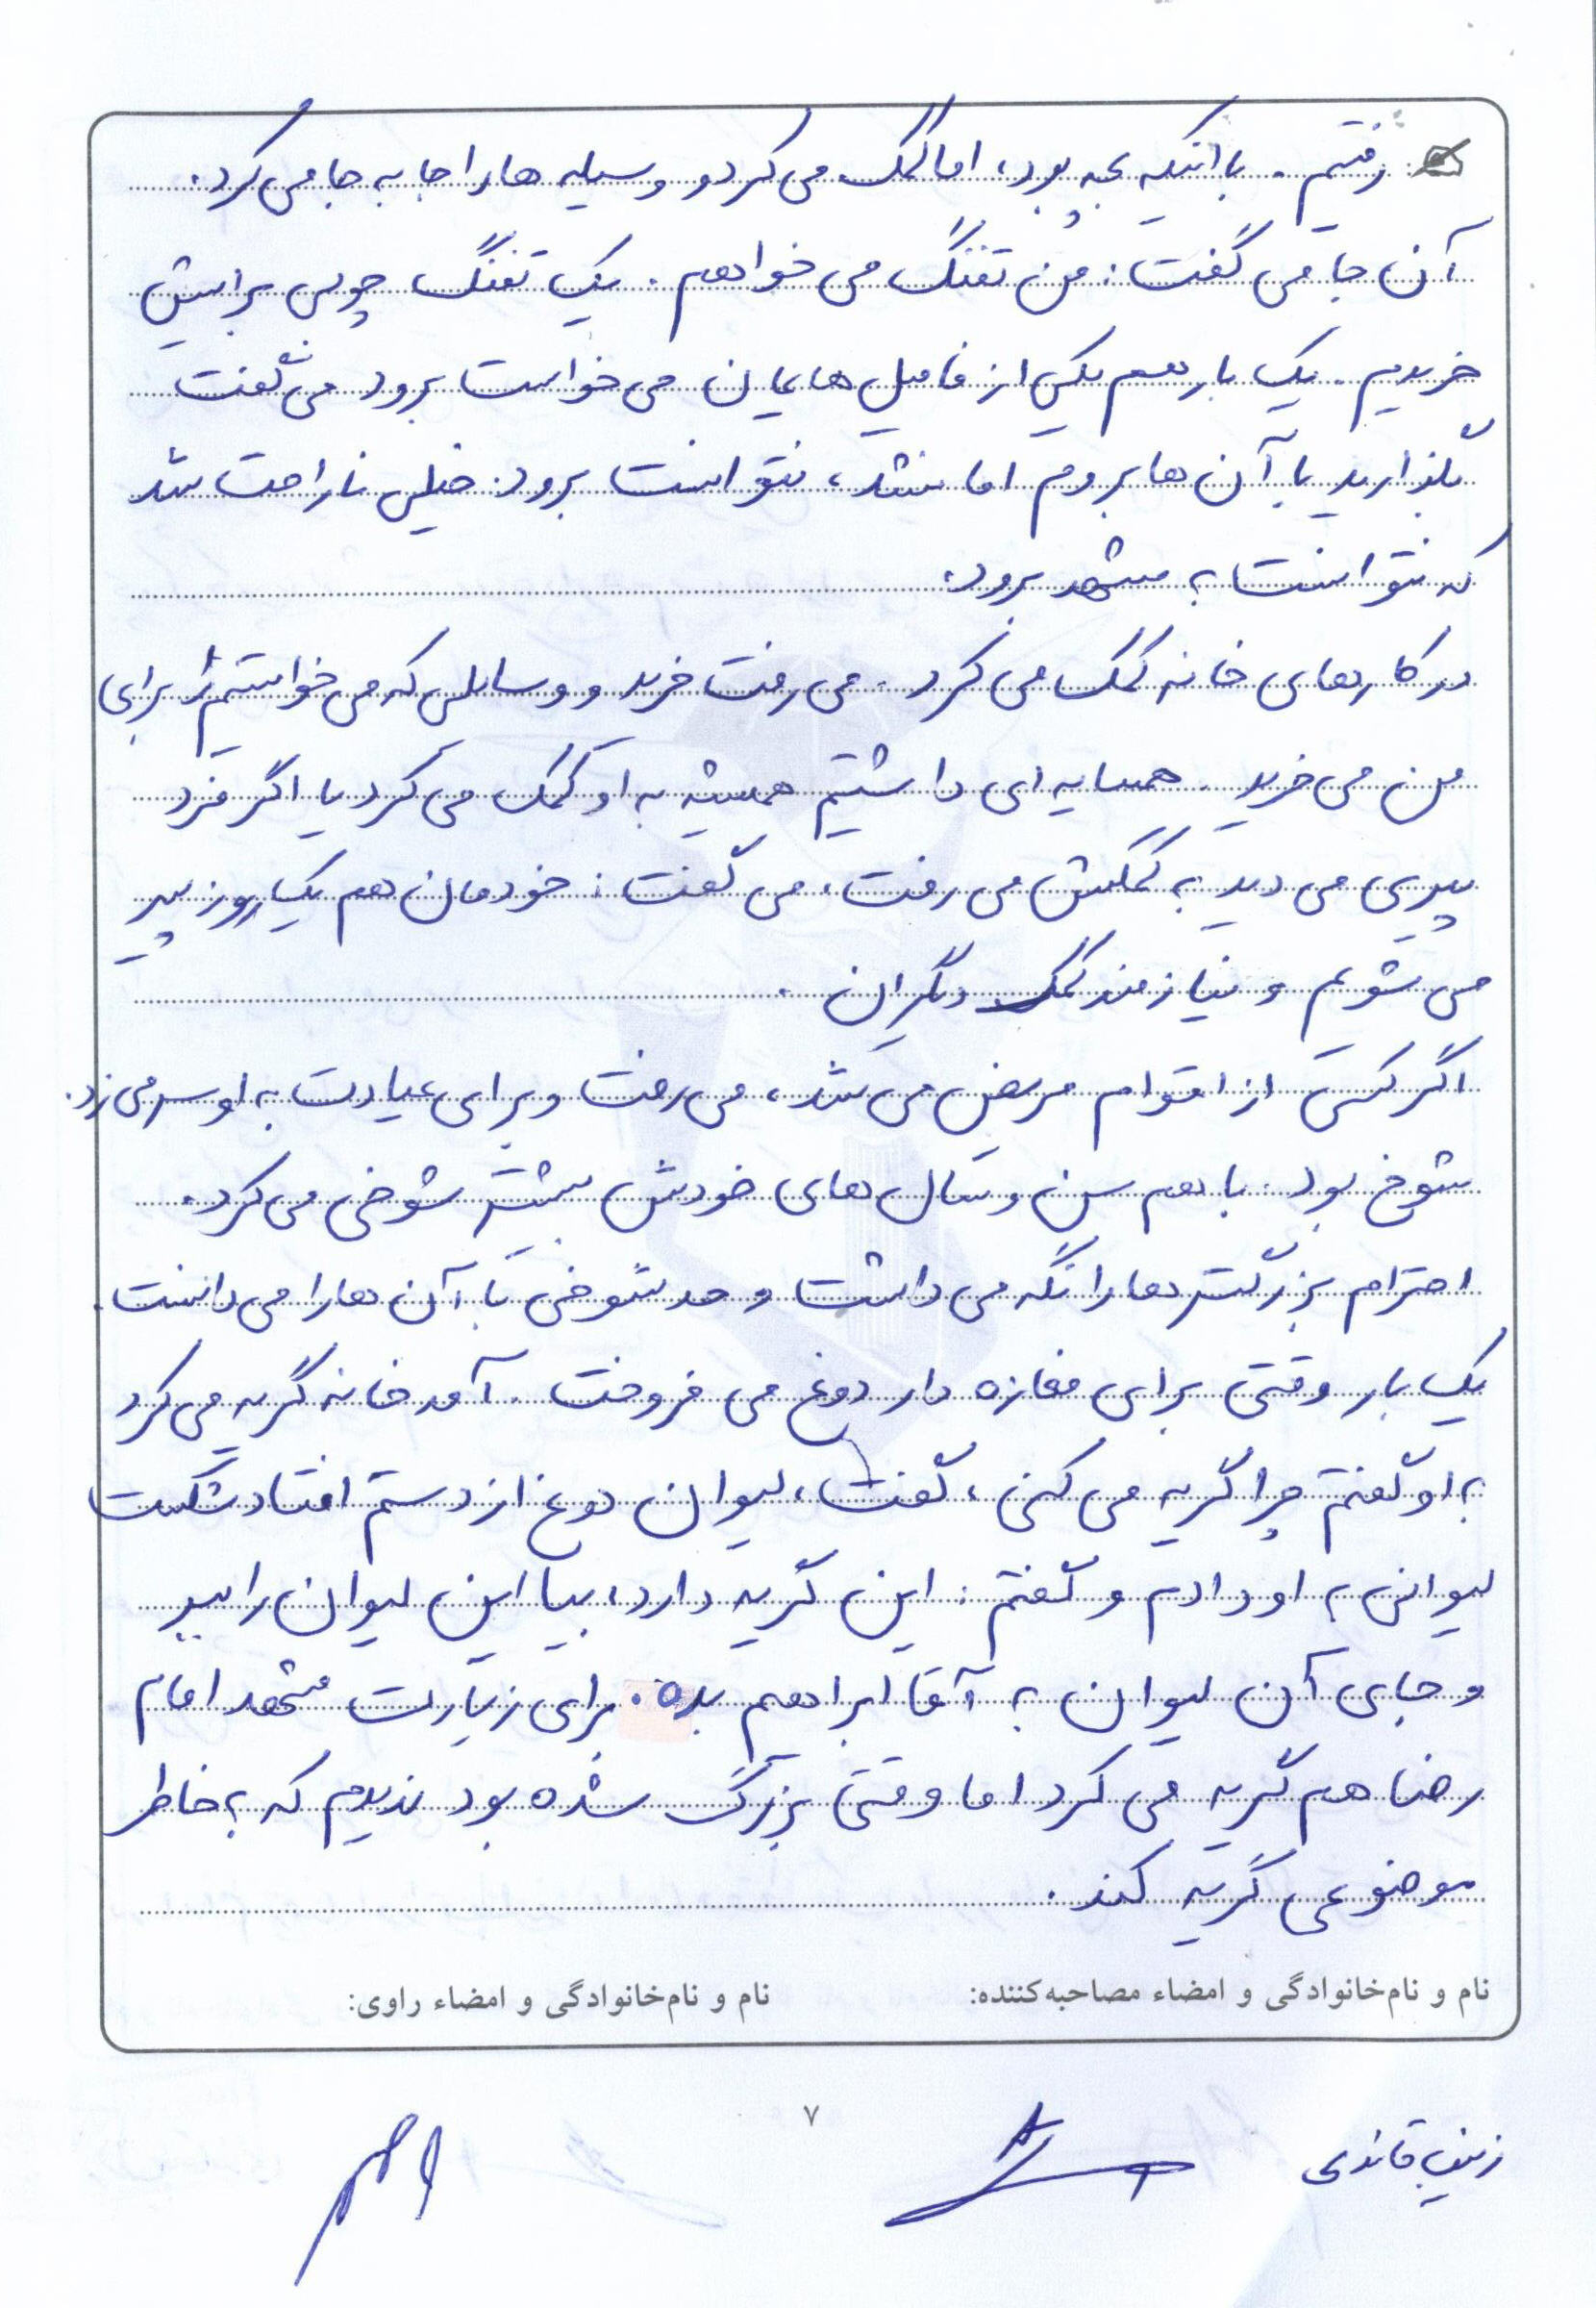 رفتیم. با اینکه بچه بود، اما کمک می کرد و وسیله ها را جا به جا می کرد.
آن جا می گفت: من تفنگ می خواهم. یک تفنگ چوبی برایش
خریدیم. یک بار هم یکی از فامیل هایمان می خواست برود می گفت
بگذارید با آن ها بروم اما نشد، نتوانست برود. خیلی ناراحت شد
که نتوانست به مشهد برود.
در کارهای خانه کمک می کرد. می رفت خرید و وسایلی که می خواستم را برای
من می خرید. همسایه ای داشتیم همیشه به او کمک می کرد یا اگر فرد
پیری می دید به کمکش می رفت، می گفت: خودمان هم یک روز پیر
می شویم و نیازمند کمک دیگران.
اگر کسی از اقوام مریض می شد، می رفت و برای عیادت به او سر می زد.
شوخ بود. با هم سن و سال های خودش بیشتر شوخی می کرد.
احترام بزرگترها را نگه می داشت و حد شوخی با آن ها را می دانست.
یک بار وقتی برای مغازه دار دوغ می فروخت. آمد خانه گریه می کرد
به او گفتم چرا گریه می کنی، گفت، لیوان دوغ از دستم افتاد شکست
لیوانی به او دادم و گفتم: این گریه دارد، بیا این لیوان را ببر
و جای آن لیوان به آقا ابراهیم بده. برای زیارت مشهد امام
رضا هم گریه می کرد اما وقتی بزرگ شده بود ندیدم که به خاطر
موضوعی گریه کند.
نام و نام‌خانوادگی و امضاء مصاحبه‌کننده: نام و نام‌خانوادگی و امضاء راوی:
۷
زینب قائدی